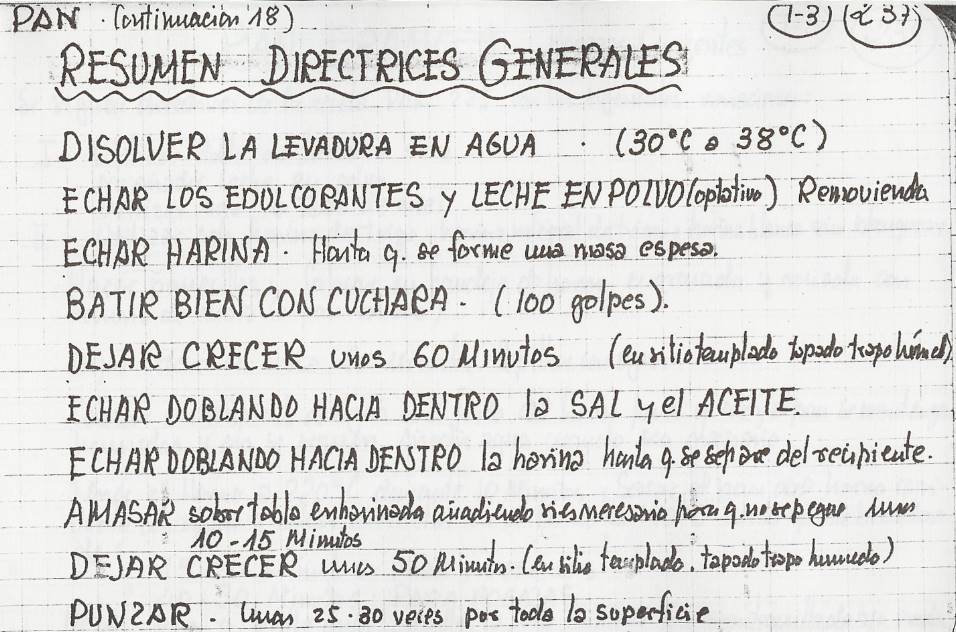 PAN. (Continuación 18) (1-3) (2 37)
RESUMEN DIRECTRICES GENERALES
DISOLVER LA LEVADURA EN AGUA. (30°C a 38°C)
ECHAR LOS EDULCORANTES y LECHE EN POLVO (optativo) Removiendo
ECHAR HARINA. Hasta q. se forme una masa espesa.
BATIR BIEN CON CUCHARA. (100 golpes).
DEJAR CRECER unos 60 Minutos (en sitio templado tapado trapo húmed)
ECHAR DOBLANDO HACIA DENTRO la SAL y el ACEITE.
ECHAR DOBLANDO HACIA DENTRO la harina hasta q. se separe del recipiente.
AMASAR sobre tabla enharinada añadiendo si es necesario para q. no se pegue unos
10-15 Minutos
DEJAR CRECER unos 50 Minutos. (en sitio templado, tapado trapo humedo)
PUNZAR. Unas 25-30 veces por toda la superficie